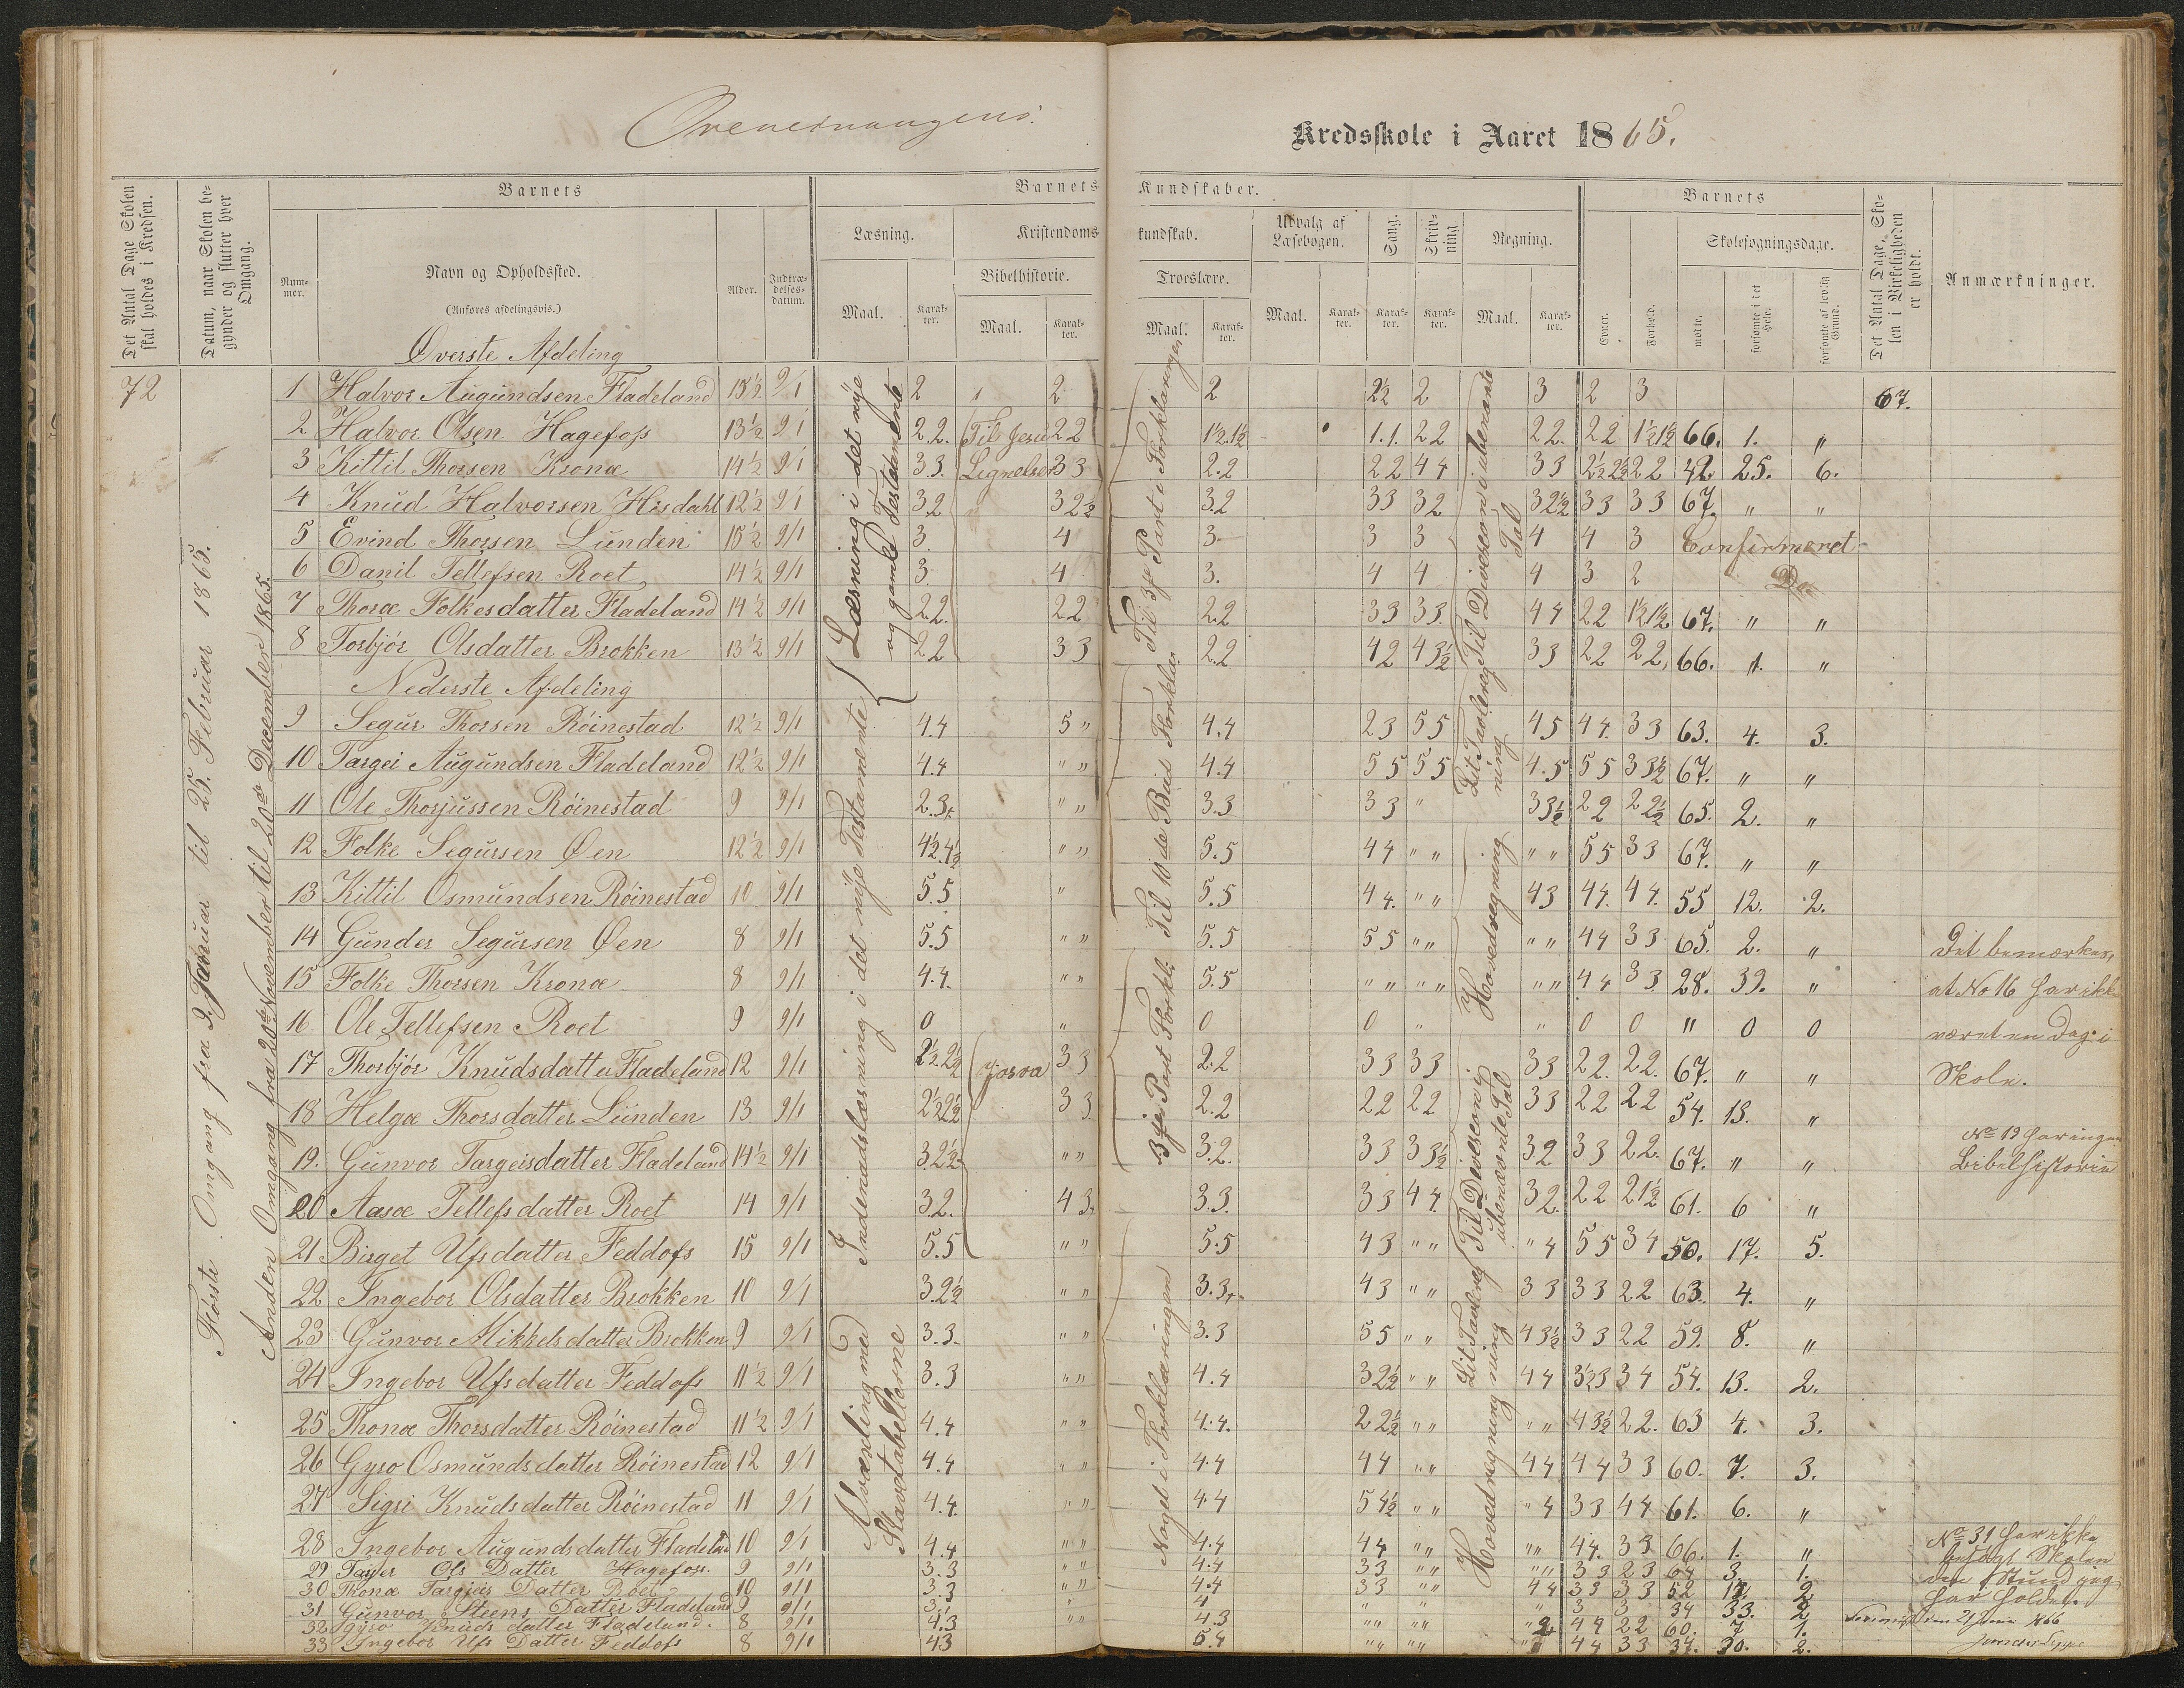 Kredsskole i Aaret 1865.
Det Antal Dage Skolen skal holdes i Kredsen.
Datum, naar Skolen begynder og slutter hver Omgang.
Barnets
Nummer.
Navn og Opholdssted.
(Anføres afdelingsvis.)
Alder.
Indtrædelsesdatum.
Barnets Kundskaber.
Læsning.
Maal.
Karakter.
Kristendomskundskab.
Bibelhistorie.
Maal.
Karakter.
Troeslære.
Maal.
Karakter.
Udvalg af Læsebogen.
Maal.
Karakter.
Sang.
Karakter.
Skrivning
Karakter.
Regning.
Maal.
Karakter.
Barnets
Evner.
Forhold.
Skolesøgningsdage.
mødte.
forsømte i det Hele.
forsømte af lovlig Grund.
Det Antal Dage, Skolen i Virkeligheden er holdt.
Anmærkninger.
72
Første Omgang fra 9. Januar til 25. Februar 1865.
Anden Omgang fra 20de November til 20de December 1865.
Øverste Afdeling
1 Halvor Augundsen Fladeland 15½ 9/1 2 2 2 2½ 2 3 2 3 67.
2 Halvor Olsen Hagefoss 13½ 9/1 2.2. 2 2 1½.1½ 1.1. 2 2 2 2. 2 2 1½ 1½ 66. 1. "
3 Kittil Thorsen Kronæ 14½ 9/1 3 3. 3 3 2.2 2 2 4 4 3 3 2½ 2½ 2 2 42. 25. 6.
4 Knud Halvorsen Hisdahl 12½ 9/1 3.2 3 2½ 3.2 3 3 3 2 3 2½ 3 3 3 3 67. " "
5 Evind Thorsen Lunden 15½ 9/1 3. 4 3. 3 3 4 4 3 Confirmeret
6 Danil Tellefsen Roet 14½ 9/1 3. 4 3. 4 4 4 3 2 Do
7 Thoræ Folkesdatter Fladeland 14½ 9/1 2.2. 2 2 2.2 3 3 3 3. 4 4 2 2 1½ 1½ 67. " "
8 Torbjör Olsdatter Brokken 13½ 9/1 2 2 3 3 2.2 4 2 4 3½ 3 3 2 2 2 2 66. 1. "
Nederste Afdeling
9 Segur Thorsen Röinestad 12½ 9/1 4.4 5 " 4.4 2 3 5 5 4 5 4 4. 3 3 63. 4. 3.
10 Targei Augundsen Fladeland 12½ 9/1 4.4 " " 4.4 5 5 5 5 4.5 5 5 3 3½ 67. " "
11 Ole Thorjussen Röinestad 9 9/1 2.3 " " 3.3 3 3 " 3 3½ 2 2 2 2½ 65. 2. "
12 Folke Segursen Øen 12½ 9/1 4½.4½ " " 5.5 4 4 " " " " 5 5 3 3 67. " "
13 Kittil Osmundsen Röinestad 10 9/1 5.5 " 5.5 4 4. " " 4 3 4 4. 4 4. 55 12. 2.
14 Gunder Segursen Øen 8 9/1 5.5 " " 5.5 5 5 " " " " 4 4 3 3 65. 2. "
15 Folke Thorsen Kronæ 8 9/1 4.4. " " 5.5 " " " " " " 4 4 3 3. 28. 39. "
16 Ole Tellefsen Roet 9 9/1 0 " 0 0 " " 0 0 " 0 0
17 Thorbjör Knudsdatter Fladeland 12 9/1 2½ 2½ 3 3 2.2 3 3 3 3 3 3 2 2. 2 2. 67. " "
18 Helga Thorsdatter Lunden 13 9/1 2½ 2½ 3 3. 2.2 2 2 2 2 3 3 2 2 2 2 54. 13. "
19. Gunvor Targeisdatter Fladeland 14½ 9/1 3.2½ " " 3.2. 3 3 3 3½ 3 2 3 3 2 2. 67. " "
20 Aasæ Tellefsdatter Roet 14 9/1 3.2. 4 3. 3.3. 3 3 4 4. 3 2. 2 2 2 1½ 61. 6 "
21 Birget Ufsdatter Feddofs 15 9/1 5.5 " " 5.5 4 3 " " " 4 5 5 3 4 50. 17. 5.
22 Ingebor Olsdatter Brokken 10 9/1 3.2½ " " 3.3 4 3 " " 3 3 3 3 2 2 63. 4. "
23 Gunvor Mikkelsdatter Brokken 9 9/1 3.3. " " 3.3 5 5 " " 4 3½ 3 3 2 2 59. 8. "
24 Ingebor Ufsdatter Feddofs 11½ 9/1 3.3 " " 4.4 3 2½ " " 4 4 3½ 3 3 4 54. 13. 2.
25 Thonæ Thorsdatter Röinestad 11½ 9/1 4.4 " " 4.4. 2 2½ " " " " 4 3½ 2 2. 63 4. 3.
26 Gyro Osmundsdatter Röinestad 12 9/1 4.4 " " 4.4 4 4 " " 4 4 4 4 3 3 60. 7. 3.
27 Sigri Knudsdatter Röinestad 11 9/1 4.4. " " 4.4 5 4½ " " " 4 3 3 4 4 61. 6. "
28 Ingebor Augundsdatter Fladeland 10 9/1 4.4 " " 4.4 4 4 " " " " 4 4. 3 3 66. 1. "
29 Olsdatter Hagefoss. 9 9/1 3.3 " " 4.4 3 3 " " " " 3 3 2 3 64 3. 1.
30 Thonæ Targjeis Datter Roet 10 9/1 3.3 " " 4.4 3 3 " " 4 4 3 3 3 3 52 2
31 Gunvor Steens Datter Fladeland 9 9/1 3. " 4 " " " 3 3 34 33. 2
32 Gyro Knudsdatter Fladeland. 8 9/1 4.3 " " 4.3 " " " " 4 4 2 2 60. 7 1.
33 Ingebor Ufs Datter Feddofs 8 9/1 4 3 5.4 " " " " 4 4 3 3 37. 30. 2.
Læsning i det nÿe og gamle Testamente
Indenadslæsning i det nÿe Testamente
Stavetabellerne
Til Jesu Lignelser
Til 3je Part i Forklaringen
Til 10de Bud Forklar.
3je Part Forkl:
Noget i Forklaringen
Til Division i ubenævnte Tal
Lit Tavleregning
Hovedregning
Til Division i ubenævnte Tal
Lit Tavleregning
Hovedregning
Confirmeret
Det bemærkes,
at No 16 har ikke
været en Dag i
Skole.
No 19 har ingen
Bibelhistorie
No 31 har ikke
besøgt Skolen
den Stund jeg
har holdet.